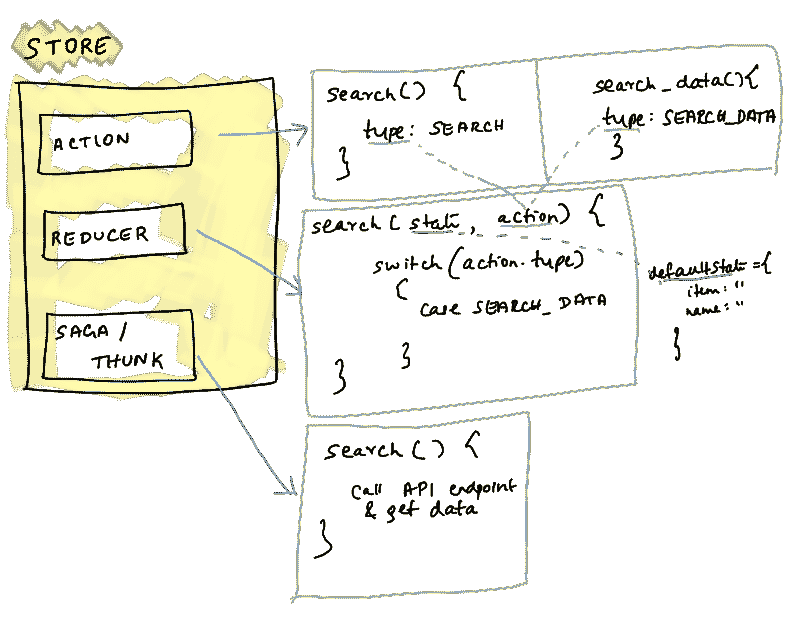 STORE
ACTION
REDUCER
SAGA /
THUNK
search() {
type: SEARCH
}
search_data(){
type: SEARCH_DATA
}
search( state, action) {
switch(action.type)
{
case SEARCH_DATA
}
}
defaultState={
item: ''
name: ''
}
search() {
Call API endpoint
& get data
}